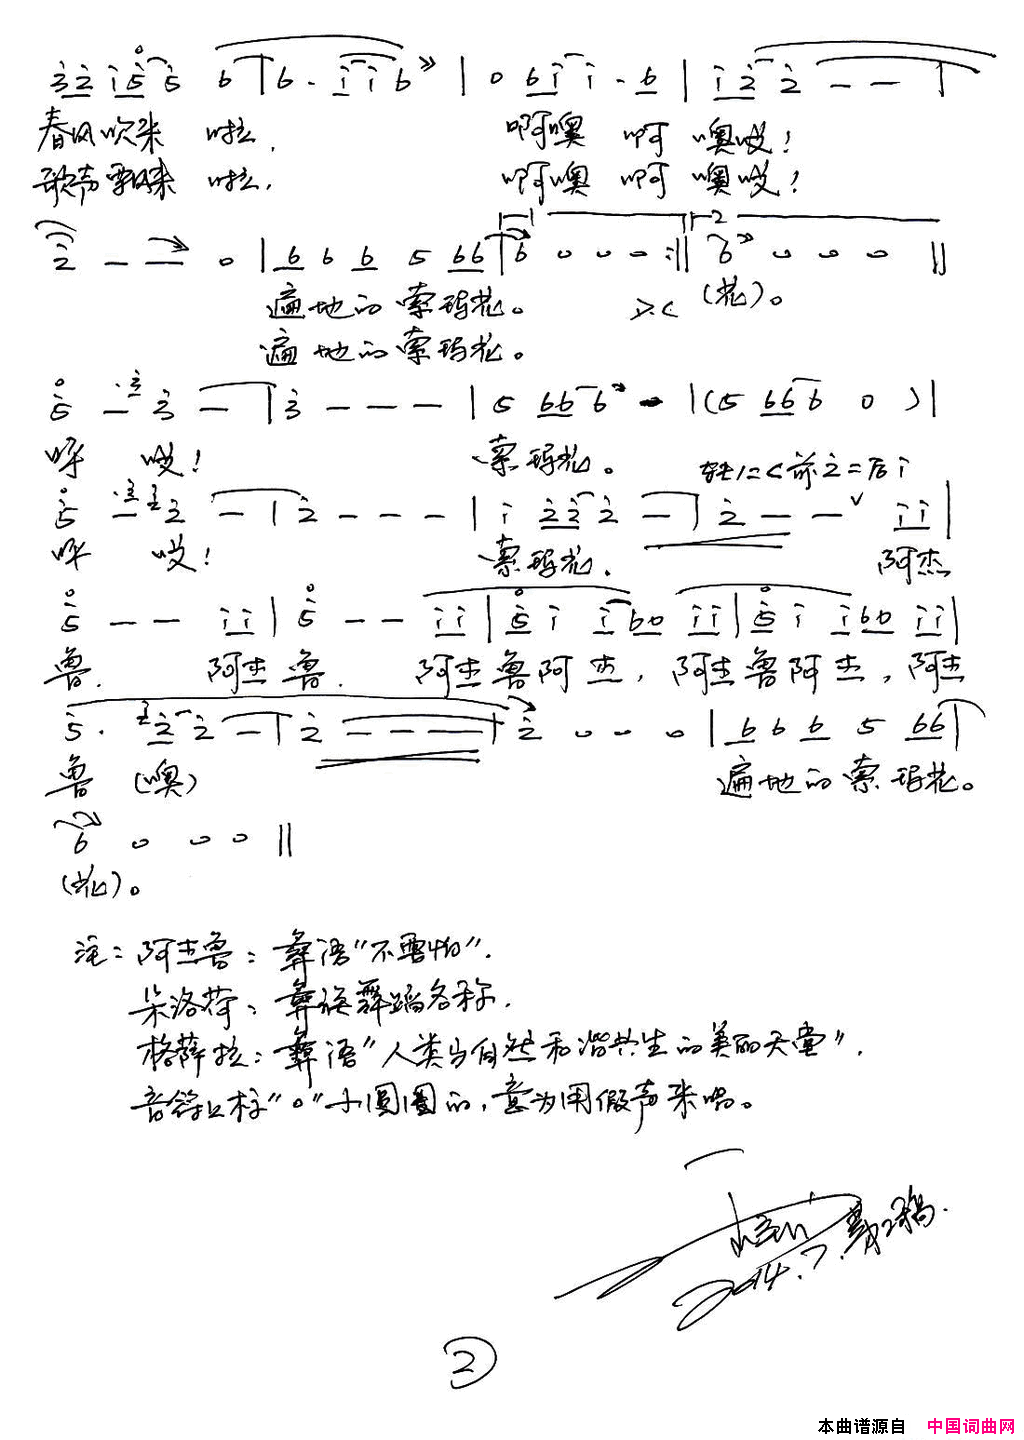 3̇ 2̇ 1̇ 5̇ 5̇ 6 | 6 · 1̇ 1̇ 6 | 0 6 1̇ 1̇ · 6 | 1̇ 2̇ 2̇ - - |
春风吹来 啦, 啊噢 啊 噢哎!
歌声飘来 啦, 啊噢 啊 噢哎!
2̇ - - 0 | 6 6 6 5 66 | 1 6 0 0 0 :|| 2 6 0 0 0 ||
遍地的索玛花。 D.C (花)。
遍地的索玛花。
5̇ - 3̇ - | 3̇ - - - | 5 66 6 - | (5 66 6 0 ) |
呀 哎! 索玛花。 转1=C 前2=后1
5̇ - 2̇ - | 2̇ - - - | 1̇ 2̇2̇ 2̇ - | 2̇ - - ∨ 1̇1̇ |
呀 哎! 索玛花. 阿杰
5̇ - - 1̇1̇ | 5̇ - - 1̇1̇ | 5̇ 1̇ 1̇60 1̇1̇ | 5̇ 1̇ 1̇60 1̇1̇ |
鲁. 阿杰鲁. 阿杰鲁阿杰, 阿杰鲁阿杰, 阿杰
5̇ · 2̇ 2̇ - | 2̇ - - - | 2̇ 0 0 0 | 6 6 6 5 66 |
鲁 (噢) 遍地的索玛花。
6 0 0 0 ||
(花)。
注: 阿杰鲁: 彝语"不要怕".
朵洛荷: 彝族舞蹈名称.
格薛拉: 彝语"人类与自然和谐共生的美丽天堂".
音符上标"。"小圆圈的, 意为用假声来唱。
2014.7. 第2稿.
②
本曲谱源自 中国词曲网